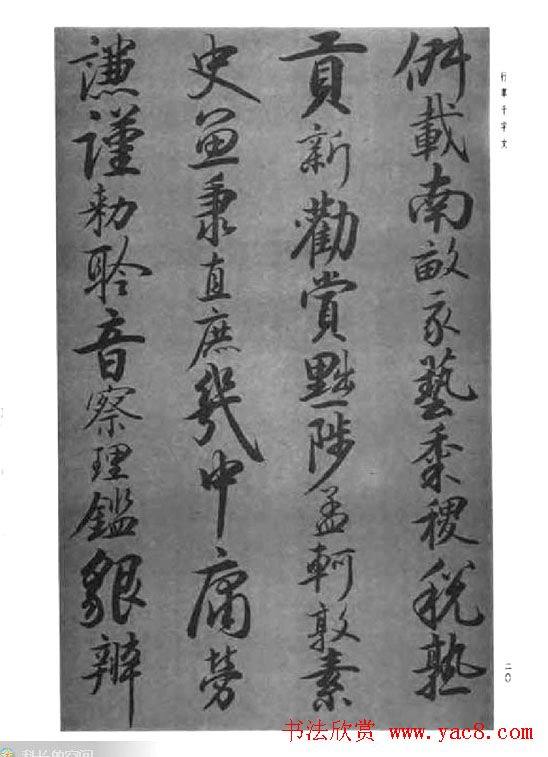 行草千字文
俶載南畝我藝黍稷税熟
貢新勸賞黜陟孟軻敦素
史魚秉直庶幾中庸勞
謙謹勅聆音察理鑑貌辨
二〇
书法欣赏 www.yac8.com